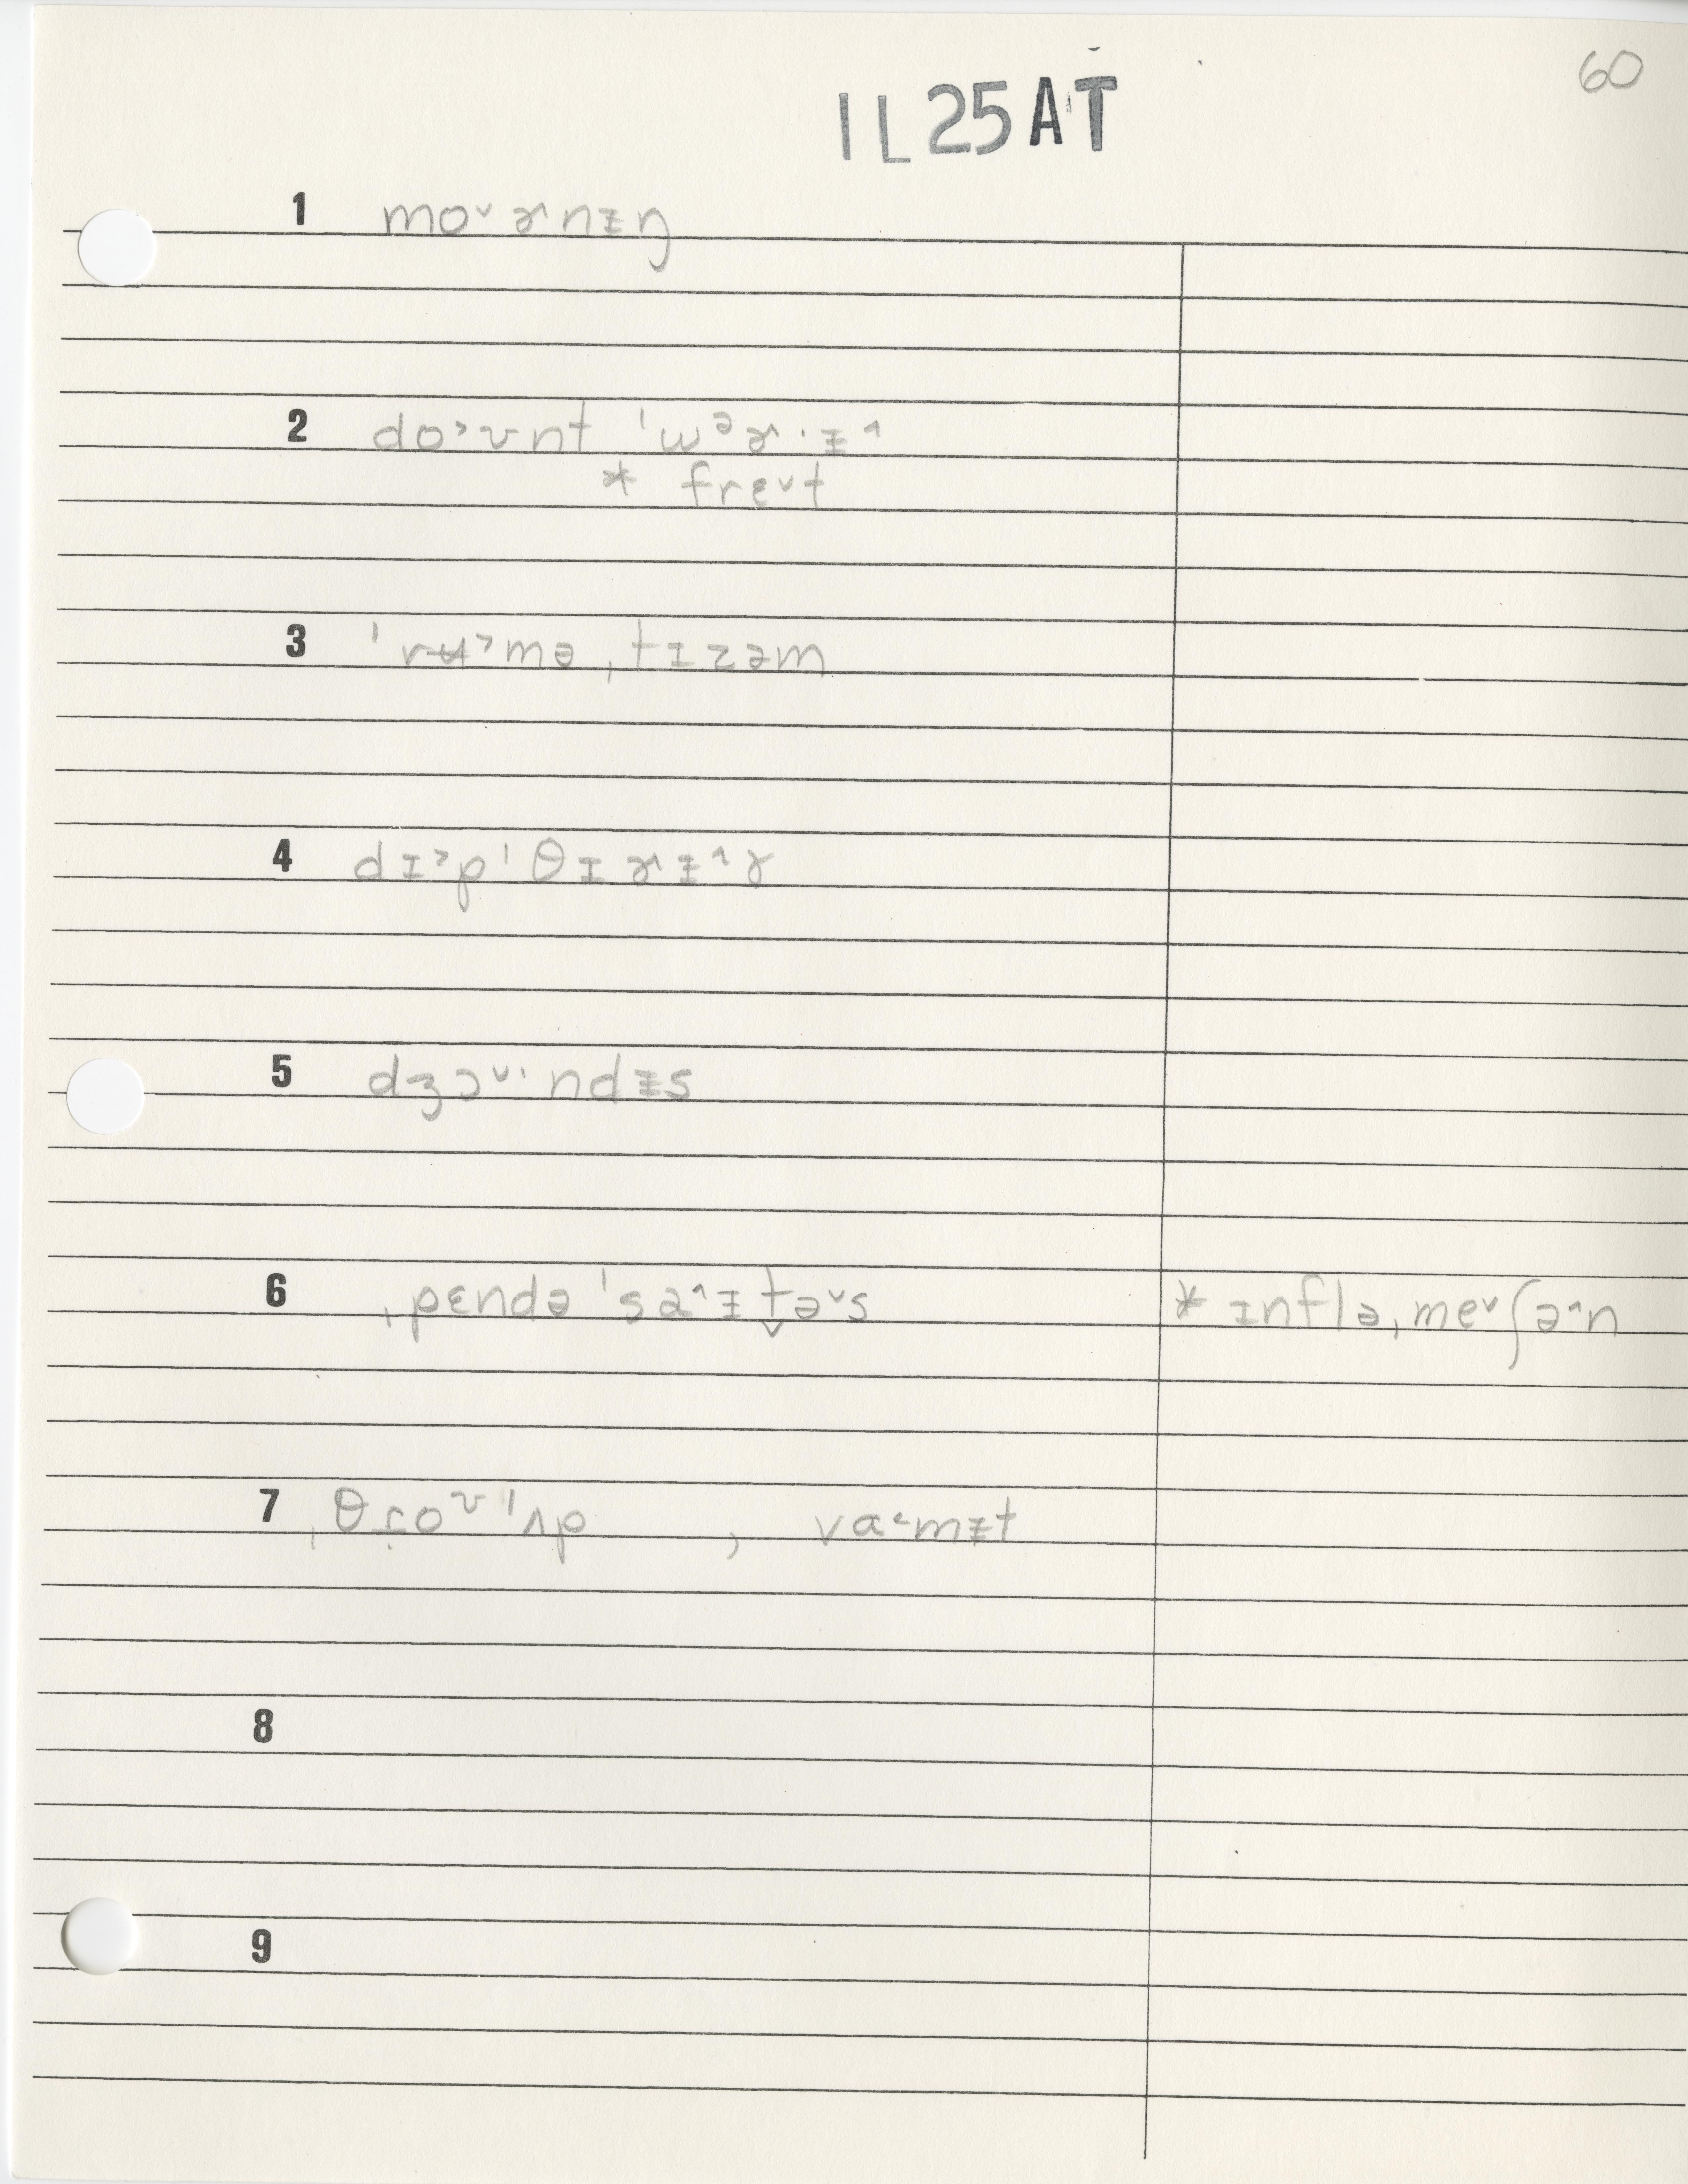 60
1L25AT
1 mo˅ɚnɪ̵ŋ
2 do˃ʊnt ˈwᵊɚ·ɪ̵˄
* frɛ˅t
3 ˈrʉ˃məˌtɪzəm
4 dɪ˃pˈθɪɚɪ̵˄ɚ
5 dʒɔ˅·ndɪ̵s
6 ˌpɛndəˈsa˄ɪt̬ə˅s * ɪnfləˌme˅ʃə˄n
7 ˌθro̜ᶷˈʌp , va˂mɪ̵t
8
9